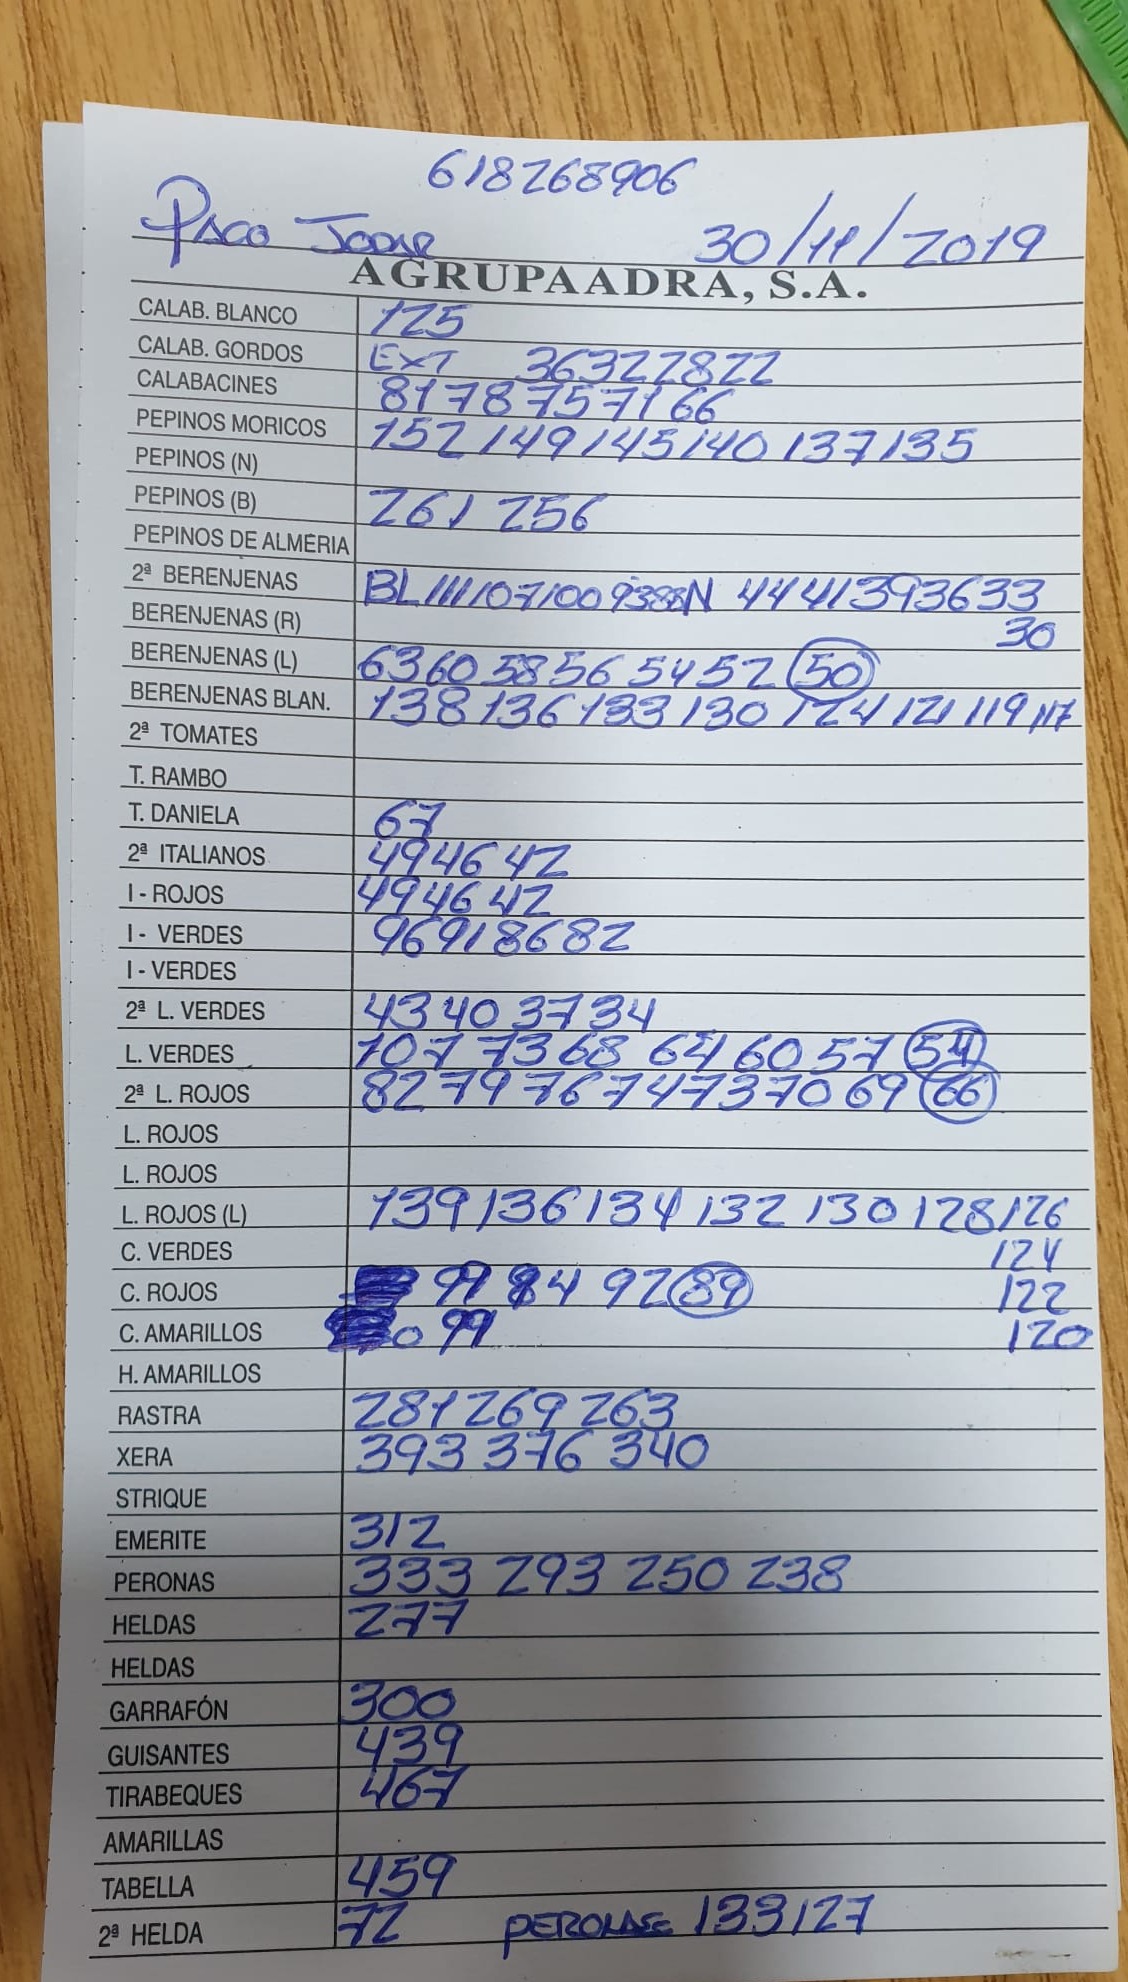 618268906
PACO JODAR 30/11/2019
AGRUPAADRA, S.A.
CALAB. BLANCO 125
CALAB. GORDOS EXT 36322822
CALABACINES 8178757166
PEPINOS MORICOS 152 149 145 140 137 135
PEPINOS (N)
PEPINOS (B) 261 256
PEPINOS DE ALMERIA
2ª BERENJENAS BL 111 107 100 93 88 N 44 41 39 36 33
BERENJENAS (R) 30
BERENJENAS (L) 63 60 58 56 54 52 50
BERENJENAS BLAN. 138 136 133 130 124 121 119 117
2ª TOMATES
T. RAMBO
T. DANIELA 67
2ª ITALIANOS 49 46 42
I - ROJOS 49 46 42
I - VERDES 96 91 86 82
I - VERDES
2ª L. VERDES 43 40 37 34
L. VERDES 107 73 68 64 60 57 54
2ª L. ROJOS 82 79 76 74 73 70 69 66
L. ROJOS
L. ROJOS
L. ROJOS (L) 139 136 134 132 130 128 126
C. VERDES 124
C. ROJOS 99 84 92 89 122
C. AMARILLOS 0 99 120
H. AMARILLOS
RASTRA 281 269 263
XERA 393 376 340
STRIQUE
EMERITE 312
PERONAS 333 293 250 238
HELDAS 277
HELDAS
GARRAFÓN 300
GUISANTES 439
TIRABEQUES 467
AMARILLAS
TABELLA 459
2ª HELDA 72 133 127